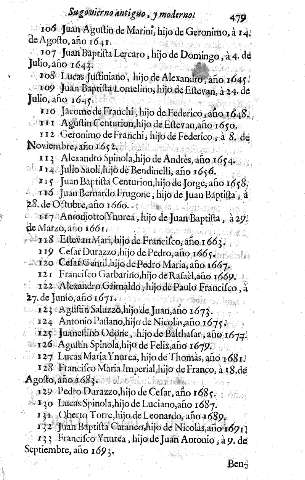 Su govierno antiguo, y moderno.
479
106 Juan Agustin de Marini, hijo de Geronimo, à 14.
de Agosto, año 1641.
107 Juan Baptista Lercaro, hijo de Domingo, à 4. de
Julio, año 1643.
108 Lucas Justiniano, hijo de Alexandro, año 1645.
109 Juan Baptista Lomelino, hijo de Estevan, à 24. de
Julio, año 1645.
110 Jacome de Franchi, hijo de Federico, año 1648.
111 Agustin Centurion, hijo de Estevan, año 1650.
112 Geronimo de Franchi, hijo de Federico, à 8. de
Noviembre, año 1652.
113 Alexandro Spinola, hijo de Andrès, año 1654.
114 Julio Saoli, hijo de Bendinelli, año 1656.
115 Juan Baptista Centurion, hijo de Jorge, año 1658.
116 Juan Bernardo Frugone, hijo de Juan Baptista, à
28. de Octubre, año 1660.
117 Antonio Ynurea, hijo de Juan Baptista, à 29.
de Marzo, año 1661.
118 Estevan Mari, hijo de Francisco, año 1663.
119 Cesar Durazzo, hijo de Pedro, año 1665.
120 Cesar Gentil, hijo de Pedro Maria, año 1667.
121 Francisco Garbarino, hijo de Rafael, año 1669.
122 Alexandro Grimaldo, hijo de Paulo Francisco, à
27. de Junio, año 1671.
123 Agustin Saluzzo, hijo de Juan, año 1673.
124 Antonio Passano, hijo de Nicolas, año 1675.
125 Juanetino Odone, hijo de Balthasar, año 1677.
126 Agustin Spinola, hijo de Felix, año 1679.
127 Lucas Maria Ynurea, hijo de Thomàs, año 1681.
128 Francisco Maria Imperial, hijo de Franco, à 18. de
Agosto, año 1683.
129 Pedro Durazzo, hijo de Cesar, año 1685.
130 Lucas Spinola, hijo de Luciano, año 1687.
131 Oberto Torre, hijo de Leonardo, año 1689.
132 Juan Baptista Cataneo, hijo de Nicolas, año 1691.
133 Francisco Ynurea, hijo de Juan Antonio, à 9. de
Septiembre, año 1693.
Ben-